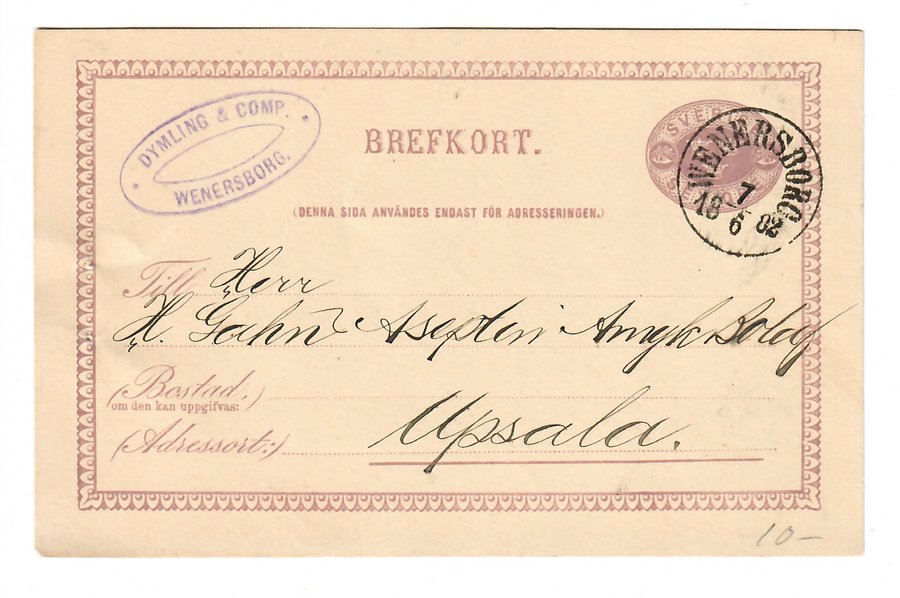 DYMLING & COMP.
WENERSBORG.
BREFKORT.
SVER
WENERSBORG
7
18 82
6
(DENNA SIDA ANVÄNDES ENDAST FÖR ADRESSERINGEN.)
Till Herr
H. Gahns Aseptin Amykos Bolag
(Bostad,)
om den kan uppgifvas:
(Adressort:) Upsala.
10-